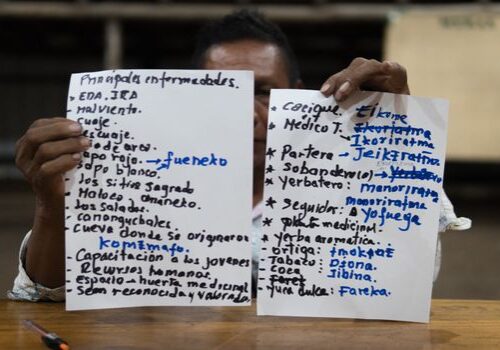 Principales enfermedades.
- EDA, IRA
- Malviento.
- Cuaje.
sapo rojo. → fueneko
sapo blanco.
los sitios sagrado
los salados.
- cananguchales
- Cueva donde se originaron
Komimafo.
- Capacitación a los jóvenes
- Recursos humanos.
- espacio → huerta medicinal
- Sean reconocida y valorados.
* cacique: Eikone
* Médico T. Ikoriratma
Ikoriratma
* Partera → Jeikiratño
* Sobandero(a) →
* Yerbatero: manoriratma
manoriratma
* Seguidor: Yofuega
medicinal.
* Yerba aromatica.
* Ortiga:
* Tabaco: Dïona.
* Coca Jibina.
* Yuca dulce: Fareka.